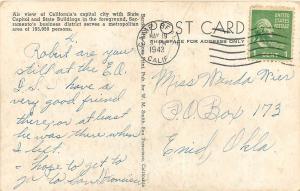 Air view of California's capital city with State
Capitol and State Buildings in the foreground. Sac-
ramento's business district serves a metropolitan
area of 165,950 persons.
POST CARD
THIS SPACE FOR ADDRESS ONLY
1943
CALIF
Robert are you
still at the E.O.
I.S. I have a
very good friend
there, or at least
he was there when
I left.
hope to get to
go to San Francisco
Miss Wenda Mier
P.O. Box 173
Enid, Okla.